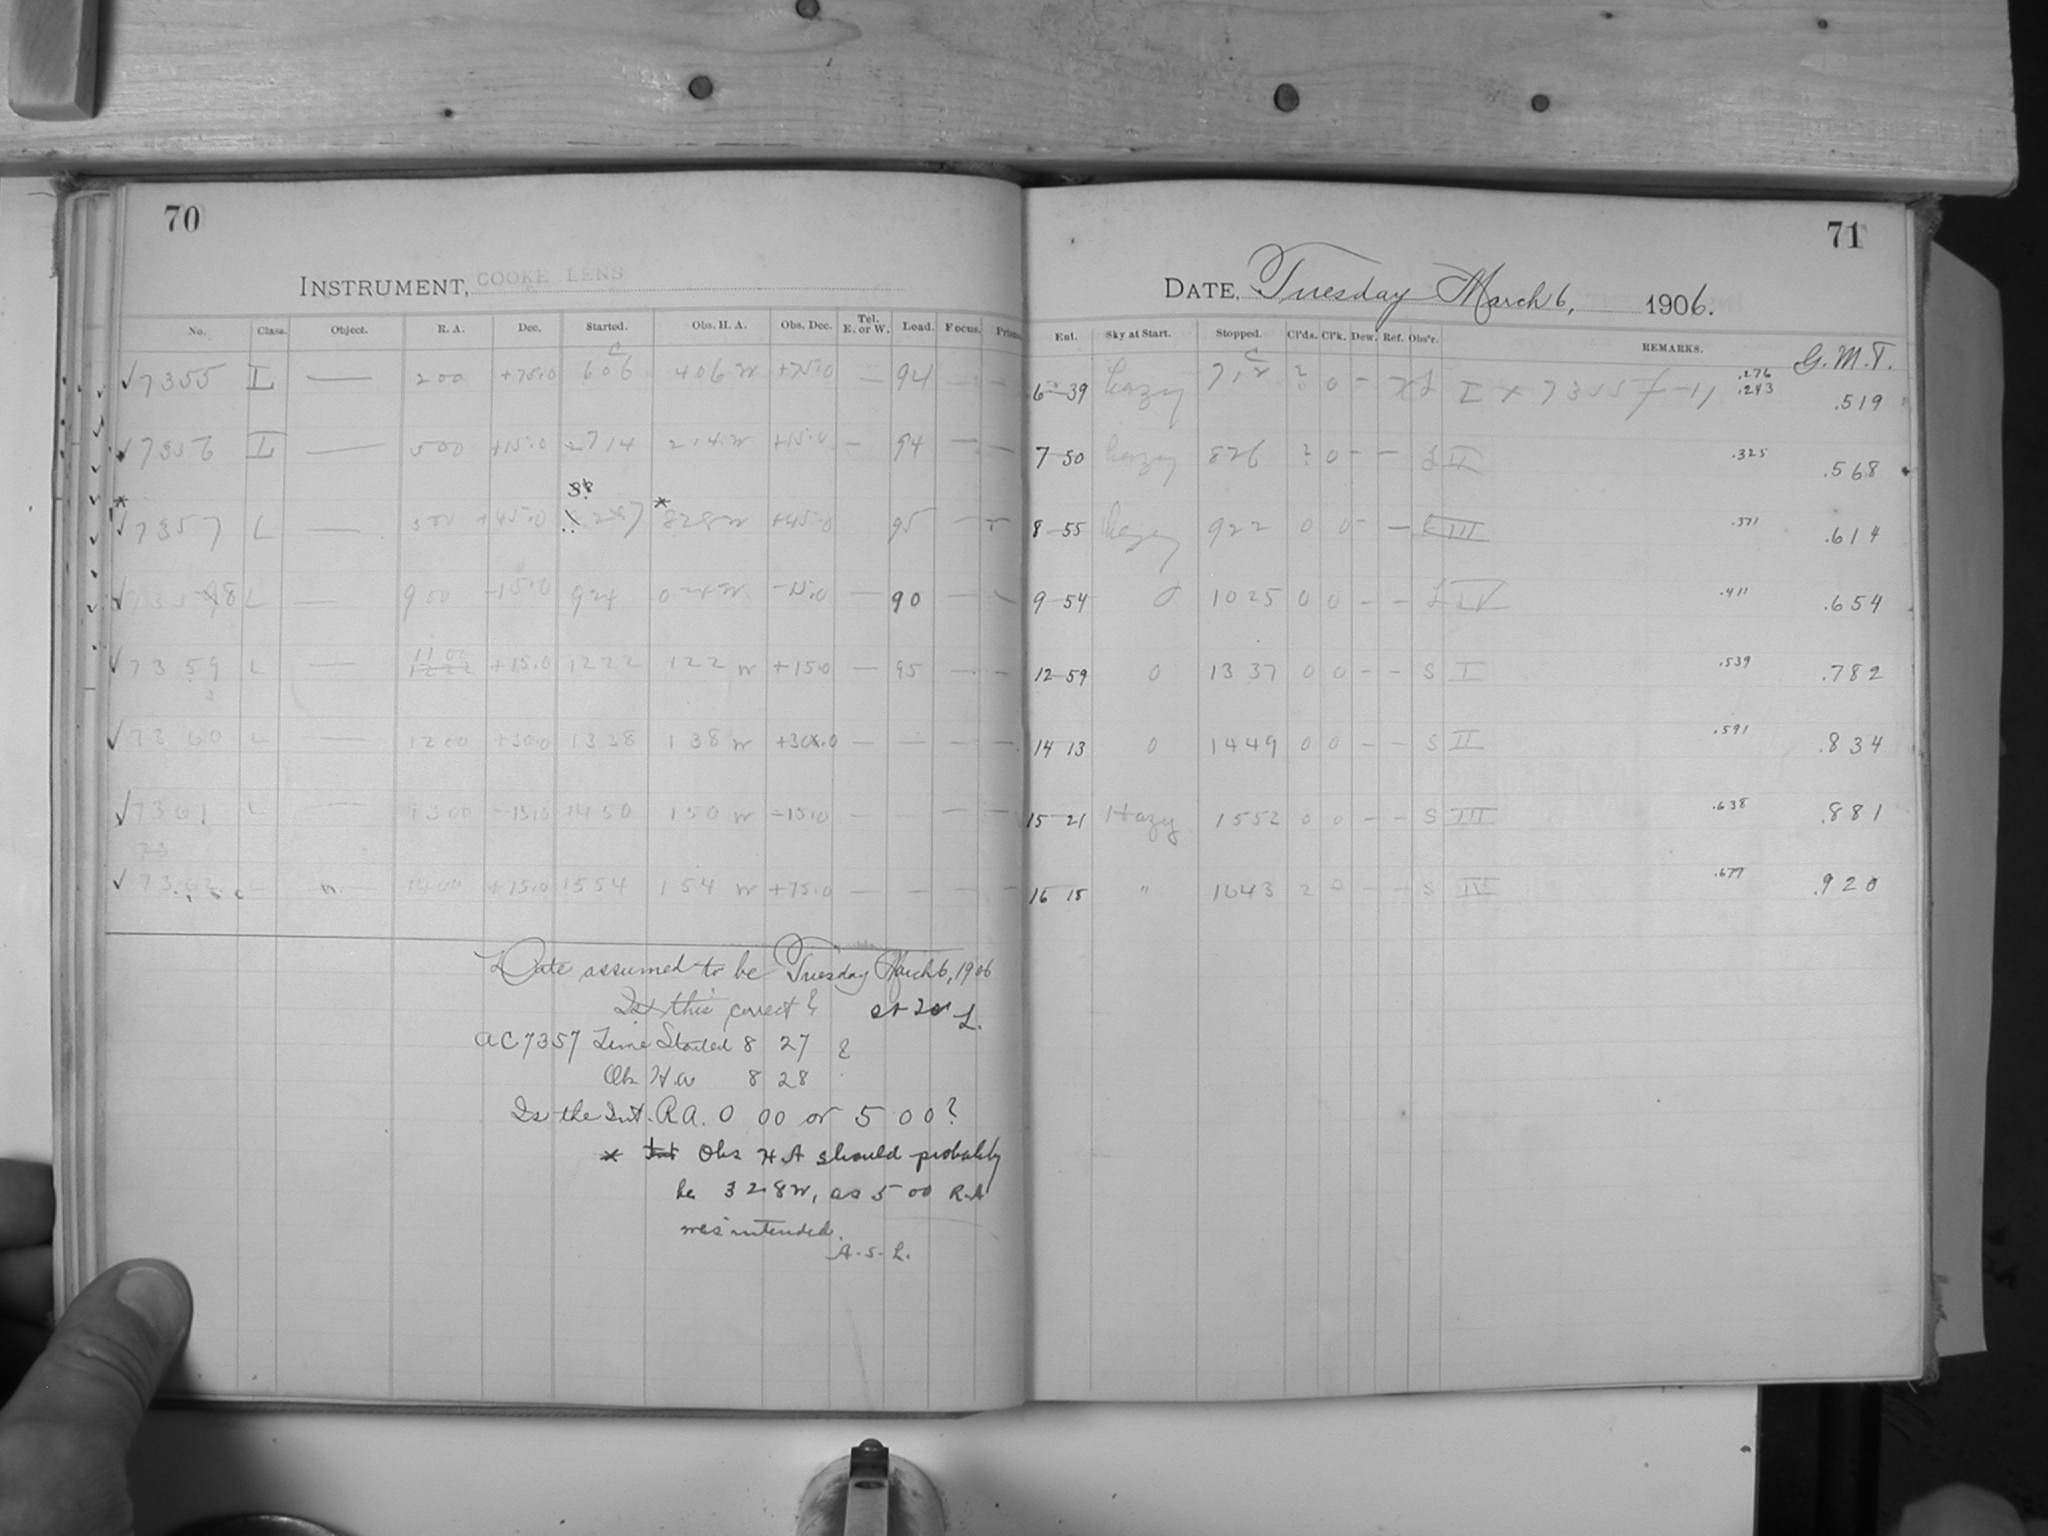 70
INSTRUMENT, COOKE LENS
No. Class. Object. R. A. Dec. Started. Obs. H. A. Obs. Dec. Tel. E. or W. Load. Focus. Prisms
✓7355 L — 200 +75.0 606 406 W +75.0 — 94 — —
✓7356 L — 500 +15.0 714 214 W +15.0 — 94 — —
38
* *
✓7357 L — +45.0 827 828 W +45.0 95 —
✓ 8 L — 900 -15.0 924 024 W -15.0 — 90 — —
1100
✓7359 L — 1222 +15.0 1222 122 W +15.0 — 95 — —
✓7360 L — 1200 +30.0 1338 138 W +30.0 — — — —
✓7361 L — 1300 -15.0 1450 150 W -15.0 — — — —
✓7362 — 1400 +75.0 1554 154 W +75.0 — — — —
Date assumed to be Tuesday March 6, 1906
Is this correct? L.
AC 7357 Time Started 8 27 ?
Obs H a 8 28
Is the Int. R A. 0 00 or 5 00?
* Int Obs H A should probably
be 3 28 W, as 5 00 R.A
was intended.
A. S. L.
71
DATE, Tuesday March 6, 1906.
Ent. Sky at Start. Stopped. Cl'ds. Cl'k. Dew. Ref. Obs'r. REMARKS. G. M. T.
6 39 hazy 712 ? 0 — L I x 7355 f-11 .276 .243 .519
7 50 hazy 826 ? 0 — — L II .325 .568
8 55 hazy 922 0 0 — — L III .371 .614
9 54 0 1025 0 0 — — L IV .411 .654
12 59 0 1337 0 0 — — S I .539 .782
14 13 0 1449 0 0 — — S II .591 .834
15 21 Hazy 1552 0 0 — — S III .638 .881
16 15 " 1643 2 0 — — S IV .677 .920